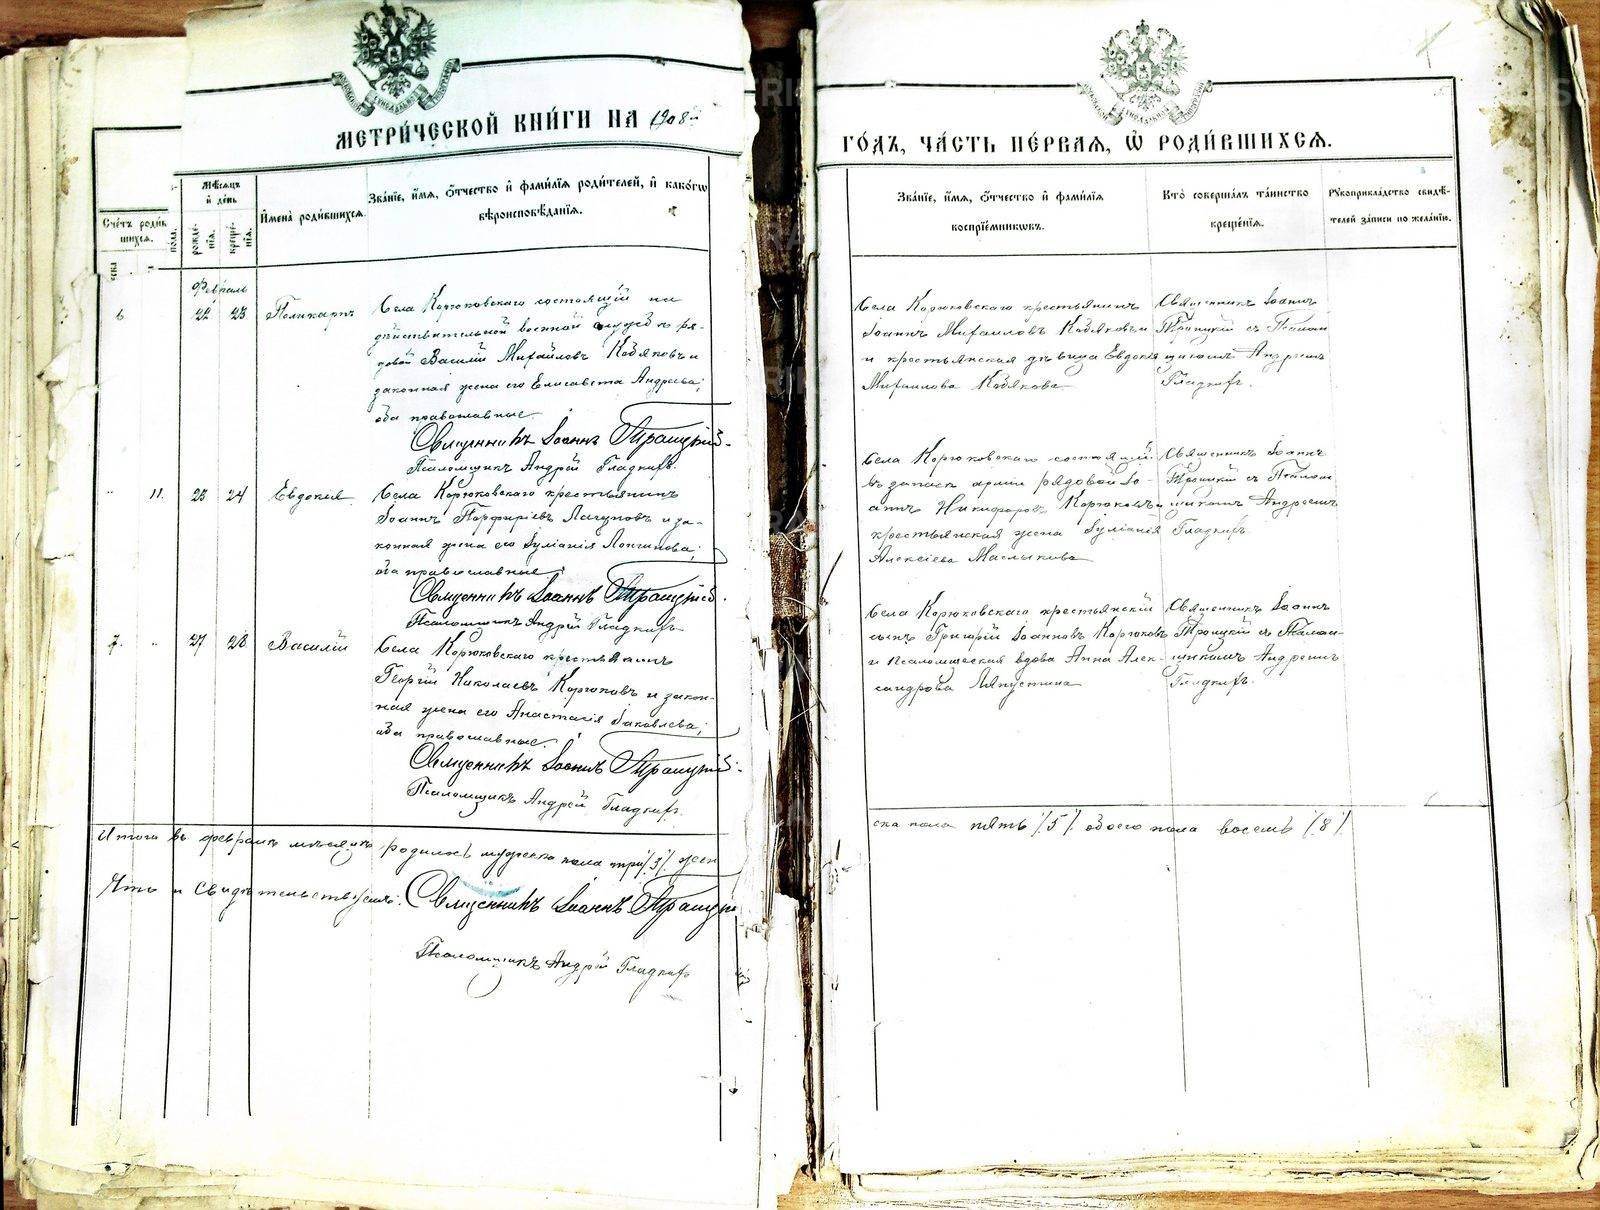 МЕТРИ́ЧЕСКОЙ КНИ́ГИ НА 1908й
Мѣсяцъ и день
Счетъ роди́вшихся.
пола.
рожде-нія.
креще́-нія.
И҆мена̀ роди́вшихся.
Зва́нїе, и҆́мя, ѻ҆́тчество и҆ фами́лїя роди́телей, и҆ како́гѡ
вѣроисповѣ́данїя.
Февраль
6 22 23 Поликарпъ
Села Корюковскаго состоящій на
дѣйствительной военной службѣ ря-
довой Василій Михайловъ Кобяковъ и
законная жена его Елисавета Андреева;
оба православные.
Священникъ Іоаннъ Троицкій.
Псаломщикъ Андрей Гладкихъ.
" 11. 23 24 Евдокія
Села Корюковскаго крестьянинъ
Іоаннъ Порфиріевъ Лагуновъ и за-
конная жена его Іуліанія Лонгинова;
оба православные.
Священникъ Іоаннъ Троицкій.
Псаломщикъ Андрей Гладкихъ
7. " 27 28 Василій
Села Корюковскаго крестьянинъ
Георгій Николаевъ Корюковъ и закон-
ная жена его Анастасія Іаковлева;
оба православные.
Священникъ Іоаннъ Троицкій.
Псаломщикъ Андрей Гладкихъ
Итого въ февралѣ мѣсяцѣ родилось мужеска пола три /3/ жен
Что и свидѣтельствуемъ: Священникъ Іоаннъ Троицкій
Псаломщикъ Андрей Гладкихъ
ГО́ДЪ, ЧА́СТЬ ПЕ́РВАЯ, Ѽ РОДИ́ВШИХСЯ.
Зва́нїе, и҆́мя, ѻ҆́тчество и҆ фами́лїя
воспрїе́мникѡвъ.
Кто̀ соверша́лъ та́инство
креще́нїя.
Рꙋкоприкла́дство свидѣ́-
телей за́писи по жела́нїю.
Села Корюковскаго крестьянинъ
Іоаннъ Михаиловъ Кобяковъ и
и крестьянская дѣвица Евдокія
Михаилова Кобякова
Священникъ Іоаннъ
Троицкій съ Псалом
щикомъ Андреемъ
Гладкихъ.
Села Корюковскаго состоящій
въ запасѣ арміи рядовой Іо-
аннъ Никифоровъ Корюковъ и
крестьянская жена Іуліанія
Алексіева Маслыкова
Священникъ Іоаннъ
Троицкій съ Псалом
щикомъ Андреемъ
Гладкихъ
Села Корюковскаго крестьянскій
сынъ Григорій Іоанновъ Корюковъ
и псаломщеская вдова Анна Алек-
сандрова Ляпустина
Священникъ Іоаннъ
Троицкій съ Псалом-
щикомъ Андреемъ
Гладкихъ.
ска пола пять /5/ обоего пола восемь /8/